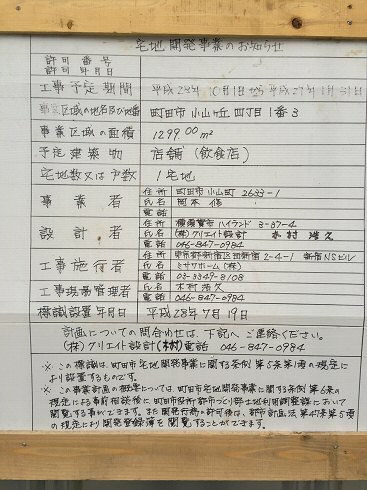 宅地開発事業のお知らせ
許可番号
許可年月日
工事予定期間 平成28年10月1日から平成29年1月31日
事業区域の地名及び地番 町田市小山ヶ丘四丁目1番3
事業区域の面積 1299.00m²
予定建築物 店舗(飲食店)
宅地数又は戸数 1宅地
事業者 住所 町田市小山町2633-1
氏名 岡本 修
電話
設計者 住所 横須賀市ハイランド3-37-4
氏名 (株)クリエイト設計 木村浩久
電話 046-847-0984
工事施行者 住所 東京都新宿区西新宿2-4-1 新宿NSビル
氏名 ミサワホーム(株)
電話 03-3349-8108
工事現場管理者 氏名 木村浩久
電話 046-847-0984
標識設置年月日 平成28年7月19日
計画についての問合わせは、下記へご連絡ください。
(株)クリエイト設計(木村)電話 046-847-0984
※この標識は、町田市宅地開発事業に関する条例第5条第1項の規定に
より設置するものです。
※この事業計画の概要については、町田市宅地開発事業に関する条例第6条の
規定による事前相談後に町田市役所都市づくり部土地利用調整課において
閲覧する事ができます。また開発行為の許可後は、都市計画法第47条第5項
の規定により開発登録簿を閲覧することができます。